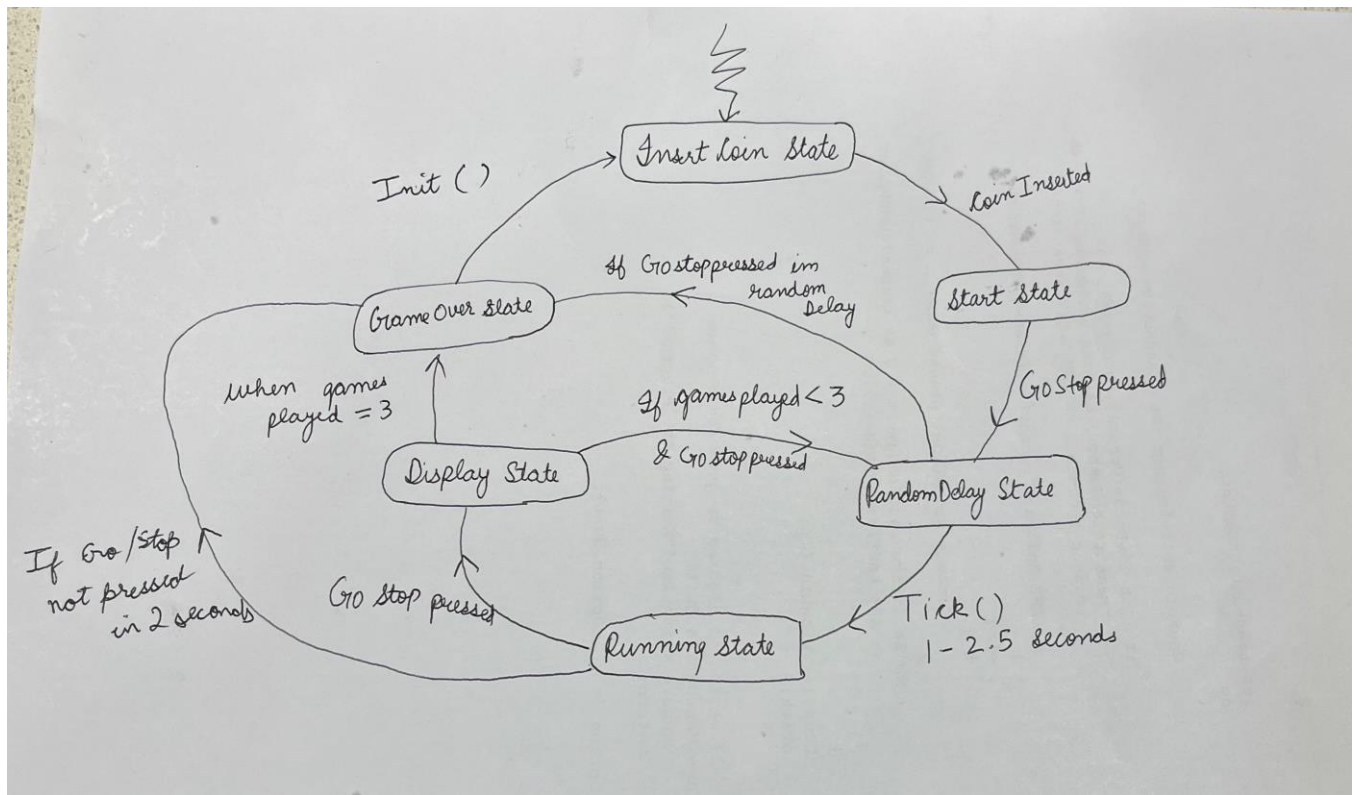 Insert Coin State
Init ( )
Coin Inserted
If Gostoppressed in
random
Delay
Start State
GameOver State
GoStoppressed
when games
played = 3
If gamesplayed < 3
& Gostoppressed
Display State
RandomDelay State
If Go/Stop
not pressed
in 2 seconds
Go Stop pressed
Tick ( )
1 - 2.5 seconds
Running State